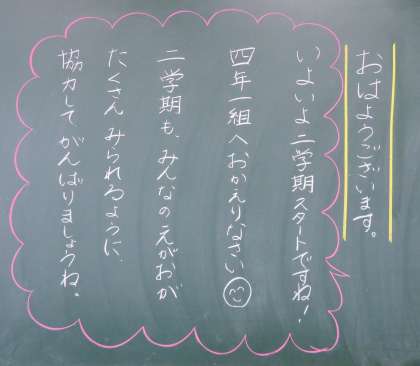 おはようございます。
いよいよ二学期スタートですね!
四年一組へおかえりなさい
二学期も、みんなのえがおが
たくさんみられるように、
協力してがんばりましょうね。